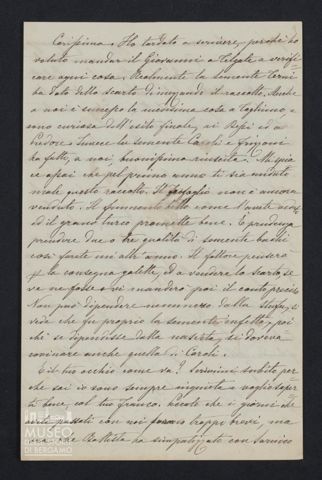 Carissima. Ho tardato a scrivere, perchè ho
voluto mandar il Giovanni a Telgate a verifi-
care ogni cosa. Realmente la semente Terni
ha dato dello scarto diminuendo il raccolto. Anche
a noi è successo la medesima cosa a Tagliuno, e
sono curiosa dell'esito finale, ai Bepi ed a
Predore; invece le semente Caroli e Frizzoni
ha fatto, a noi, buonissima riuscita. Mi spia-
ce assai che pel primo anno ti sia andato
male questo raccolto. Il non è ancora
venduto. Il frumento bello come l'avete
ed il gran turco promette bene. È prudenza
prendere due o tre qualità di semente bachi
così farete un altr'anno. Il fattore penserà
p la consegna galette, ed a vendere lo scarto, se
ve ne fosse e vi manderà poi il conto preciso
Non può dipendere nemmeno dalla stufa, si
vede che fu proprio la semente infetta, poi
chè se dipendesse dalla nascita, si doveva
rovinare anche quella di Caroli.
E il tuo occhio come va? Scrivimi subito per
chè sai io sono sempre inquieta e voglio saper
ti bene, col tuo Franco. Peccato che i giorni che
avete passati con noi furono troppo brevi, ma
che Battista ha simpatizzato con
MUSEO
DI BERGAMO